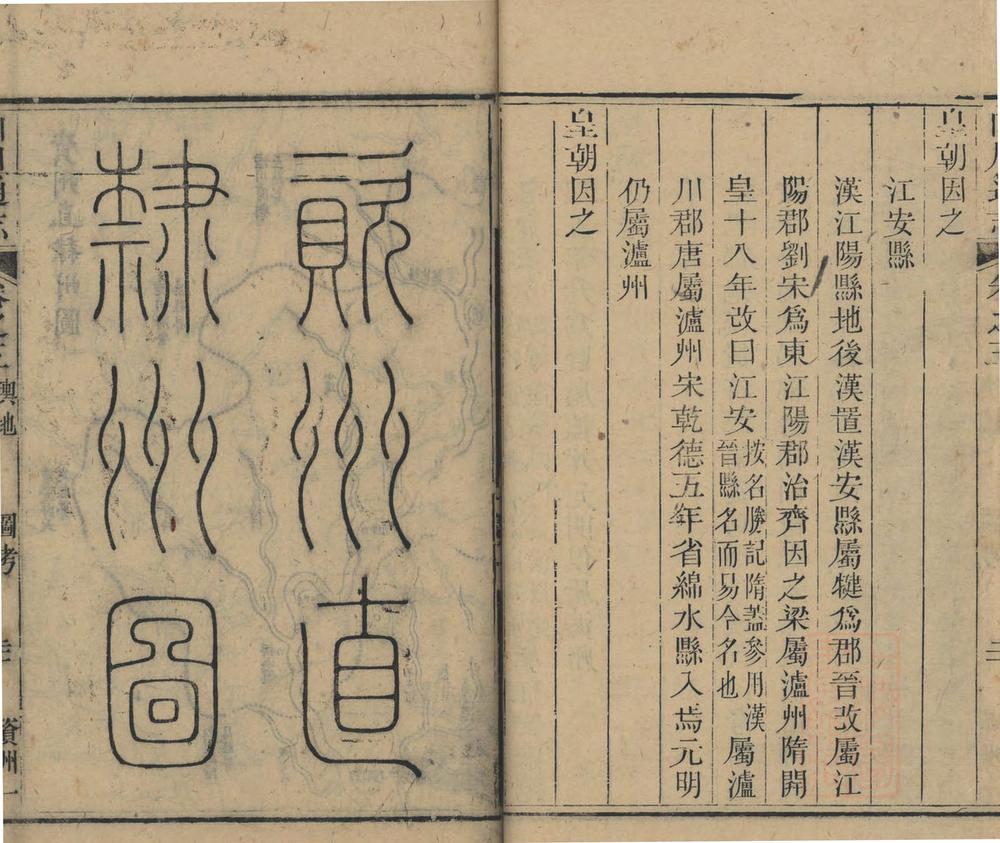 皇朝因之
江安縣
漢江陽縣地後漢置漢安縣屬犍爲郡晉改屬江
陽郡劉宋爲東江陽郡治齊因之梁屬瀘州隋開
皇十八年改曰江安按名勝記隋蓋參用漢晉縣名而易今名也屬瀘
川郡唐屬瀘州宋乾德五年省綿水縣入焉元明
仍屬瀘州
皇朝因之
資州直
隸州圖
輿地
圖考
資州一